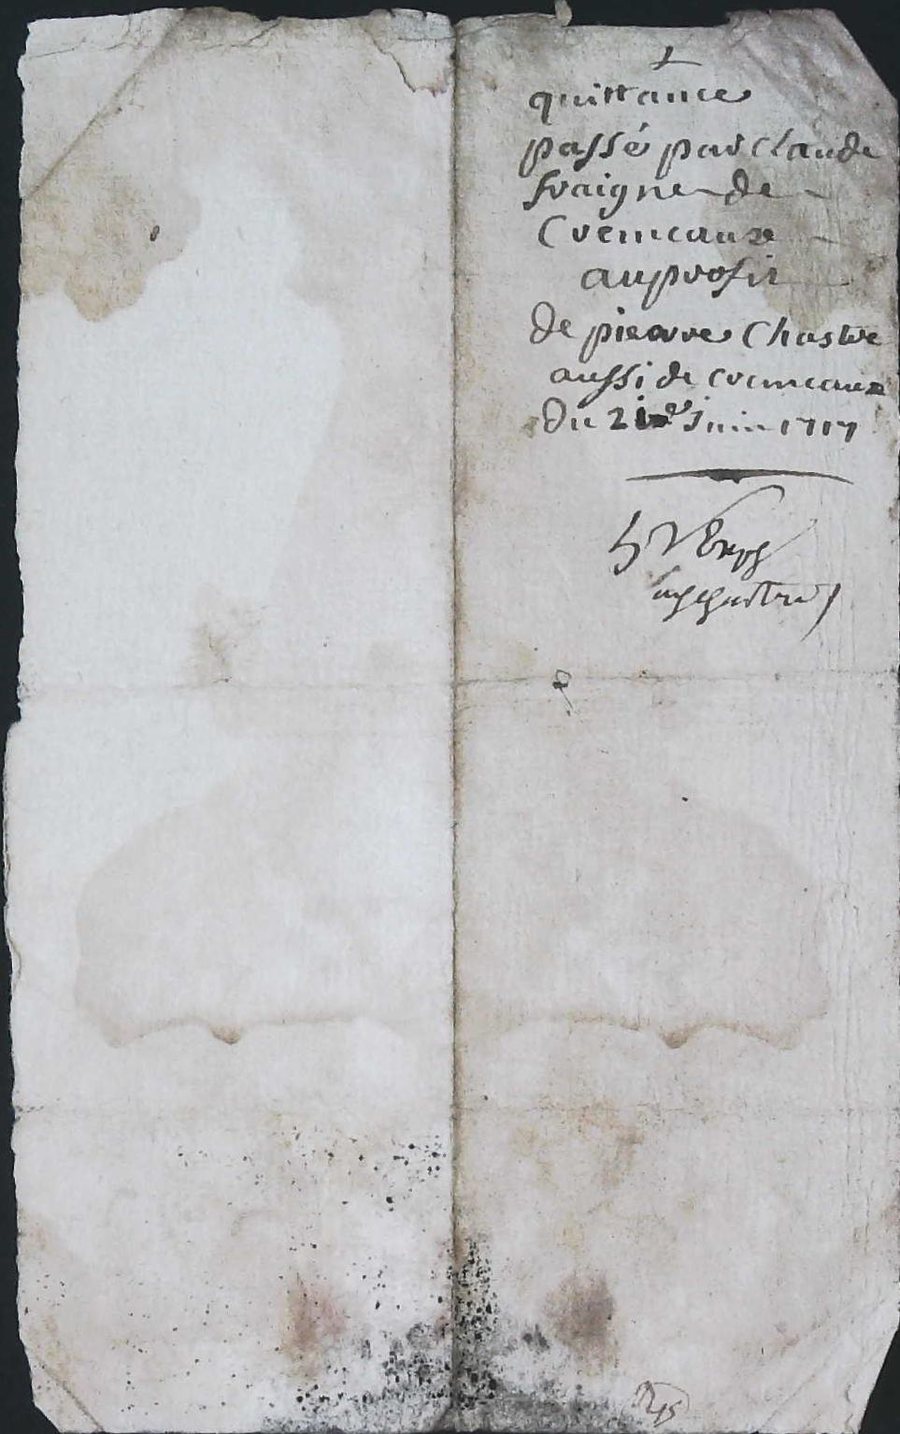 quittance
passé par Claude
fraigne de
Cremeaux
au profit
de pierre Chastre
aussi de cremeaux
Du 21e Juin 1717